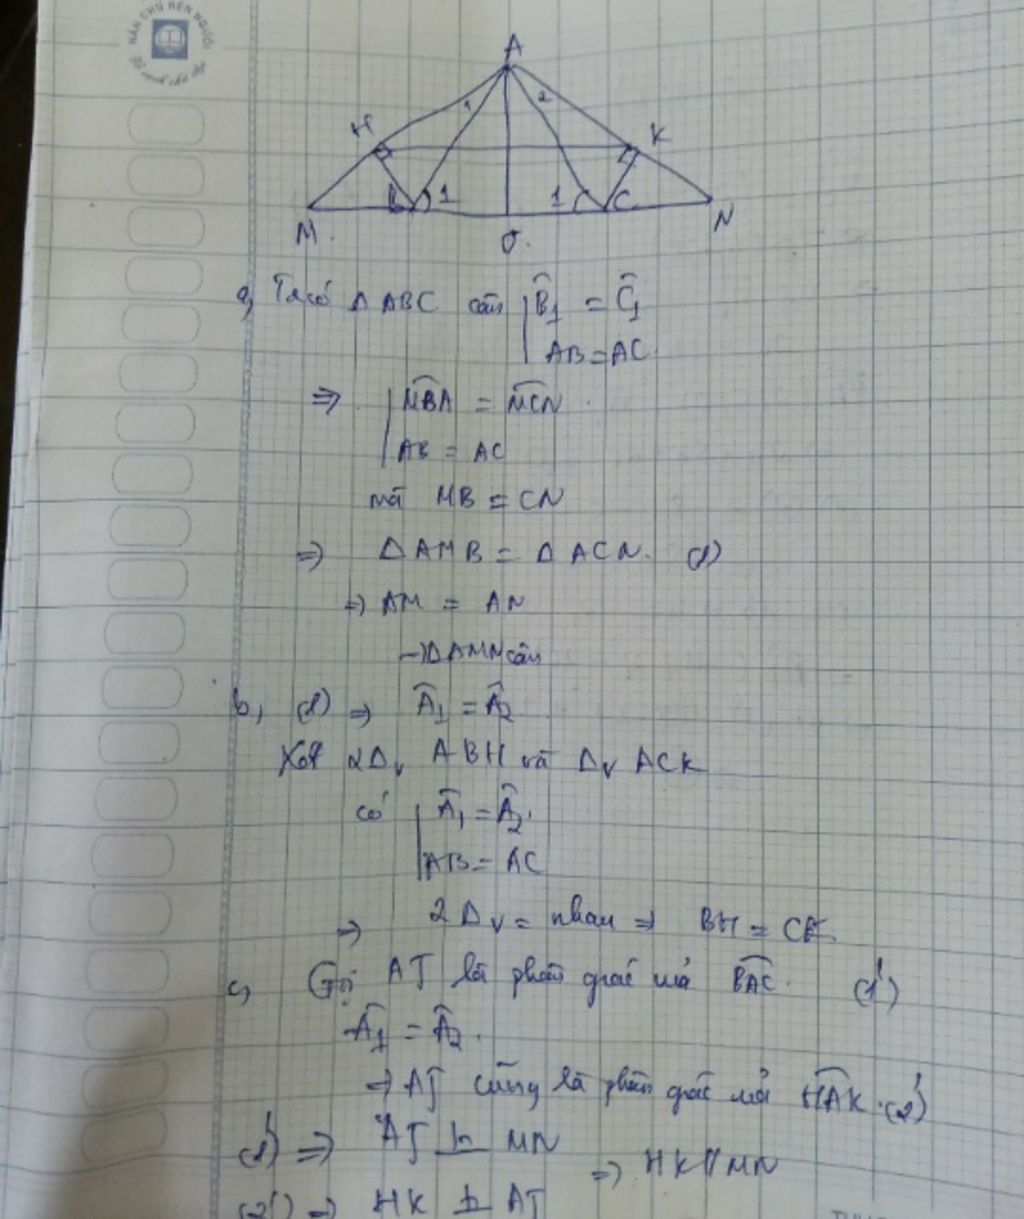 NÂN CHỮ RÈN NGƯỜI
A
1 2
H K
B 1 1 C
M. J. N
a, Ta có Δ ABC cân B̂1 = Ĉ1
AB = AC
⇒ MBA = MCN.
AB = AC
mà MB = CN
⇒ Δ AMB = Δ ACN. (1)
→ AM = AN
→ Δ AMN cân
b, (1) ⇒ Â1 = Â2
Xét 2Δv ABH và Δv ACK
có Â1 = Â2.
AB = AC
⇒ 2 Δv = nhau ⇒ BH = CK
c, Gọi AJ là phân giác của BAC. (1')
Â1 = Â2.
⇒ AJ cũng là phân giác của HAK. (2')
(1') ⇒ AJ ⊥ MN
⇒ HK // MN
(2') ⇒ HK ⊥ AJ